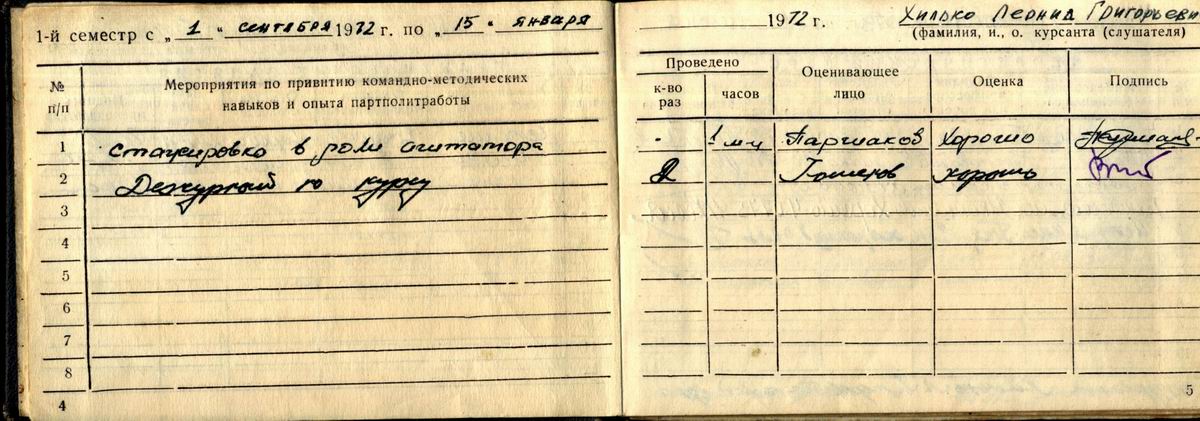 1-й семестр с „ 1 " сентября 1972 г. по „ 15 " января 1972 г.
Хилько Леонид Григорьеви
(фамилия, и., о. курсанта (слушателя)
№ п/п
Мероприятия по привитию командно-методических
навыков и опыта партполитработы
Проведено
к-во раз
часов
Оценивающее лицо
Оценка
Подпись
1 Стажировка в роли агитатора - 1 м-ц Паршаков Хорошо
2 Дежурный по курсу 2 хорошо
3
4
5
6
7
8
4
5